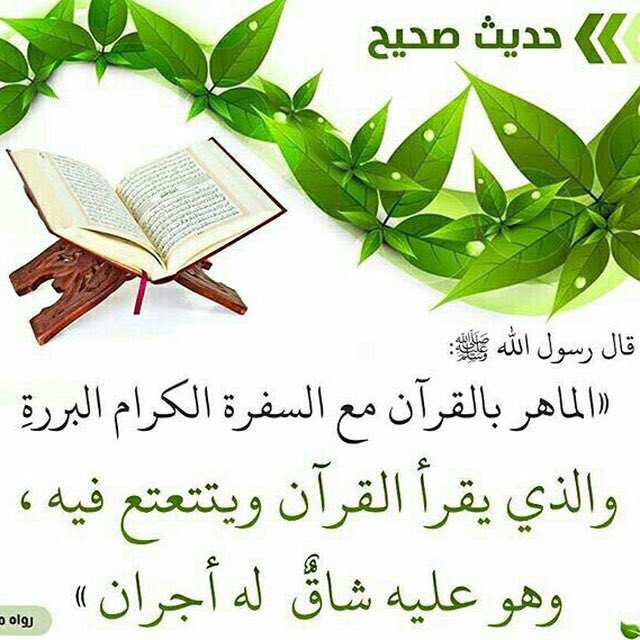 حديث صحيح
قال رسول الله ﷺ:
«الماهر بالقرآن مع السفرة الكرام البررةِ
والذي يقرأ القرآن ويتتعتع فيه ،
وهو عليه شاقٌّ له أجران »
رواه م